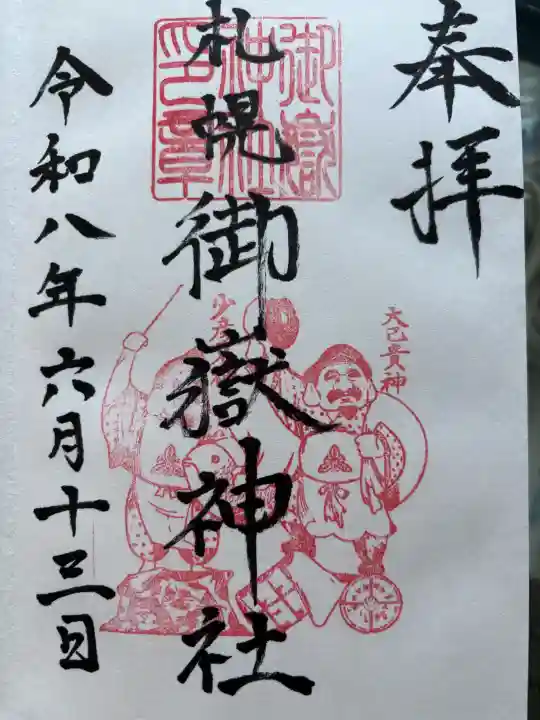 奉拝
大己貴神
札幌御嶽神社
御嶽神社印章
少彦
令和八年六月十三日